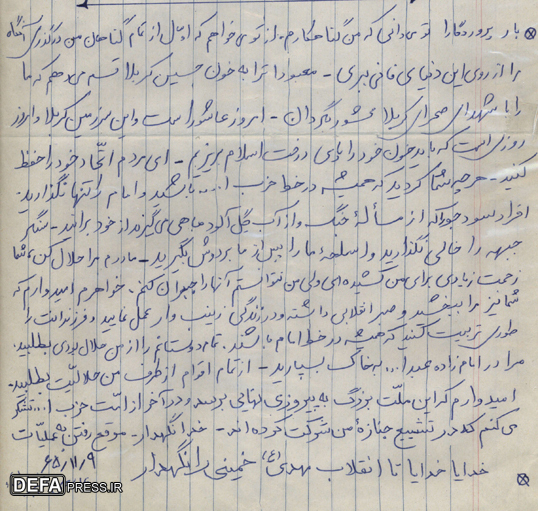 بار پروردگارا تو میدانی که من گناهکارم، از تو می خواهم که اوّل از تمام گناهان من درگذری آنگاه
مرا از روی این دنیای فانی ببری - معبودا ترا به خون حسین کربلا قسم می دهم که ما
را با شهدای صحرای کربلا محشور گردان - امروز عاشورا است و این سرزمین کربلا و امروز
روزی است که باید خون خود را پای درخت اسلام بریزیم - ای مردم اتّحاد خود را حفظ
کنید - هر چه شما کردید که همیشه در خط حزب ا... باشید و امام را تنها نگذارید
افراد سودجو را که از مسألهٔ جنگ و از آب گل آلود ماهی می گیرند از خود برانند - سنگر
جبهه را خالی نگذارید و اسلحهٔ ما را پس از ما بر دوش بگیرید - مادرم مرا حلال کن، شما
زحمت زیادی برای من کشیده ای ولی من نتوانستم آنها را جبران کنم. خواهرم امیدوارم که
شما نیز مرا ببخشید و صبر انقلابی داشته و در زندگی زینب وار عمل نمایید و فرزندانت را
طوری تربیت کنید که همیشه در خط امام باشند. تمام دوستانم را از من حلال بودی بطلبید.
مرا در امام زاده عبدا... به خاک بسپارید - از تمام اقوام از طرف من حلالیّت بطلبید -
امیدوارم که این ملّت بزرگ به پیروزی نهایی برسد و در آخر از امّت حزب ا... تشکر
می کنم که در تشییع جنازهٔ من شرکت کرده اند - خدا نگهدار - موقع رفتن به عملیّات
خدایا خدایا تا انقلاب مهدی (ع) خمینی را نگهدار
۶۵/۱۱/۹
DEFAPRESS.IR